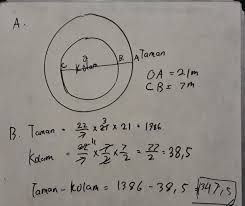 A.
C Kolam B A Taman
OA = 21m
CB = 7m
B. Taman = 22/7 × 21 × 21 = 1386
Kolam = 22/7 × 7/2 × 7/2 = 77/2 = 38,5
Taman - Kolam = 1386 - 38,5 = 1347,5